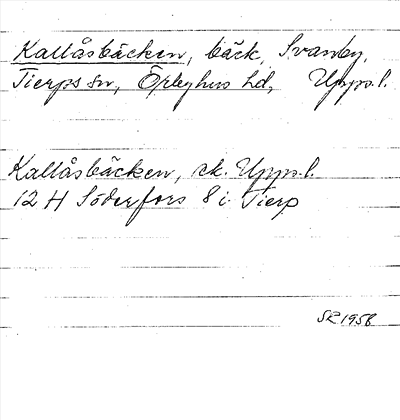 Kallåsbäcken, bäck, Svanby,
Tierps sn, Örbyhus hd, Upps.l.
Kallåsbäcken, ek. Upps.l.
12 H Söderfors 8 i Tierp
SR 1958